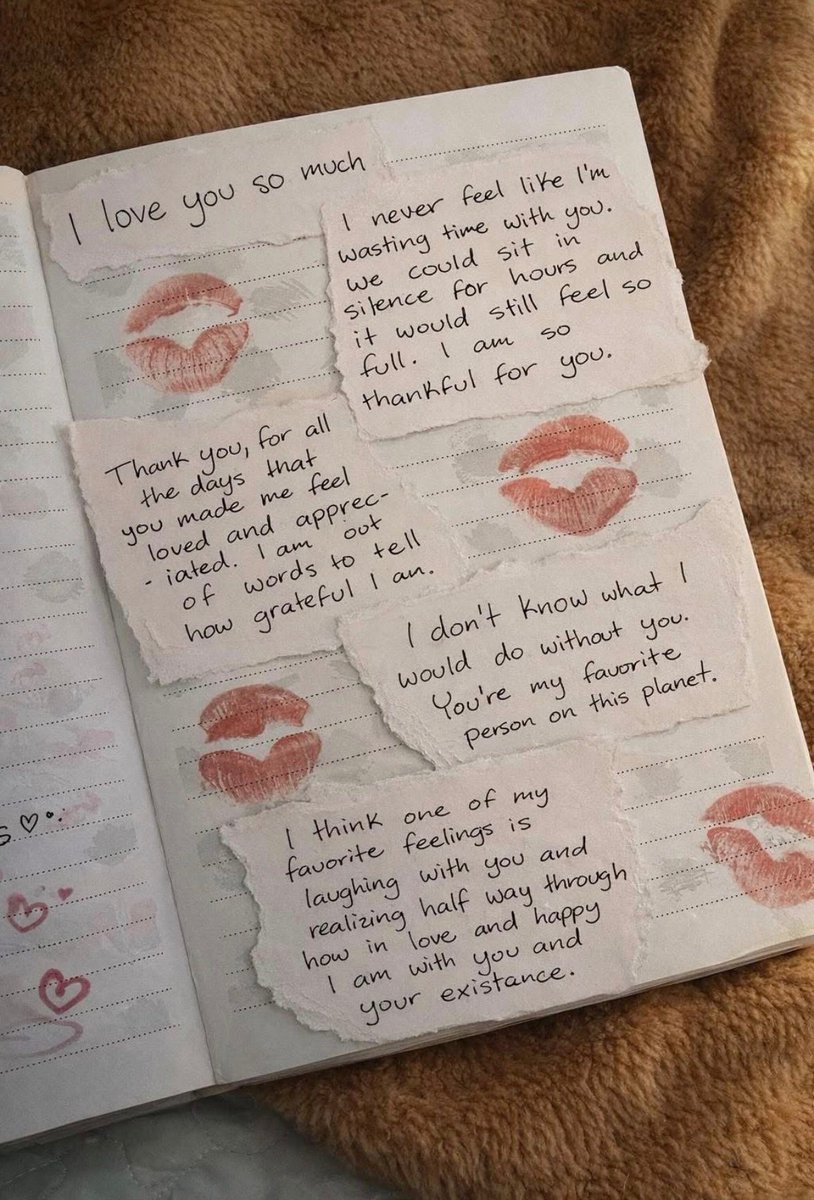 I love you so much
I never feel like I'm
wasting time with you.
we could sit in
silence for hours and
it would still feel so
full. I am so
thankful for you.
Thank you, for all
the days that
you made me feel
loved and apprec-
- iated. I am out
of words to tell
how grateful I an.
I don't know what I
would do without you.
You're my favorite
person on this planet.
I think one of my
favorite feelings is
laughing with you and
realizing half way through
how in love and happy
I am with you and
your existance.